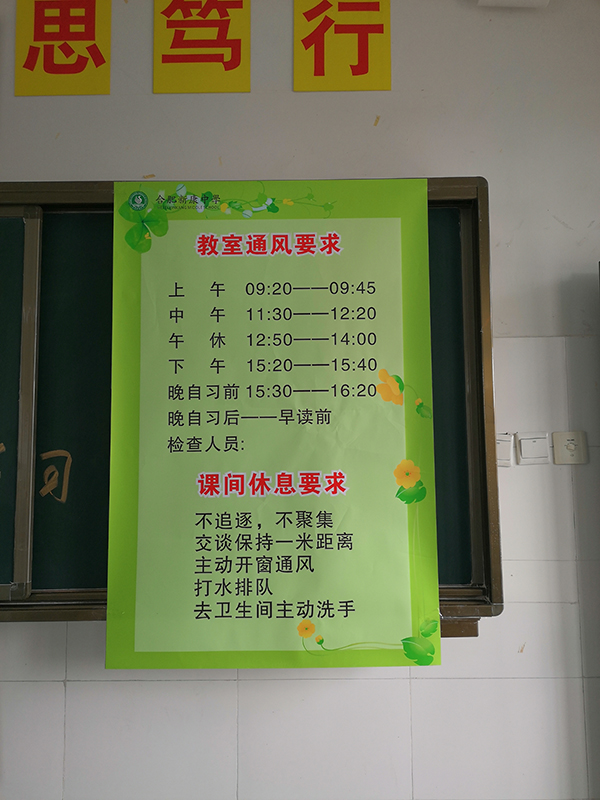 思 笃 行
合肥新康中学
教室通风要求
上 午 09:20——09:45
中 午 11:30——12:20
午 休 12:50——14:00
下 午 15:20——15:40
晚自习前 15:30——16:20
晚自习后——早读前
检查人员:
课间休息要求
不追逐，不聚集
交谈保持一米距离
主动开窗通风
打水排队
去卫生间主动洗手
习